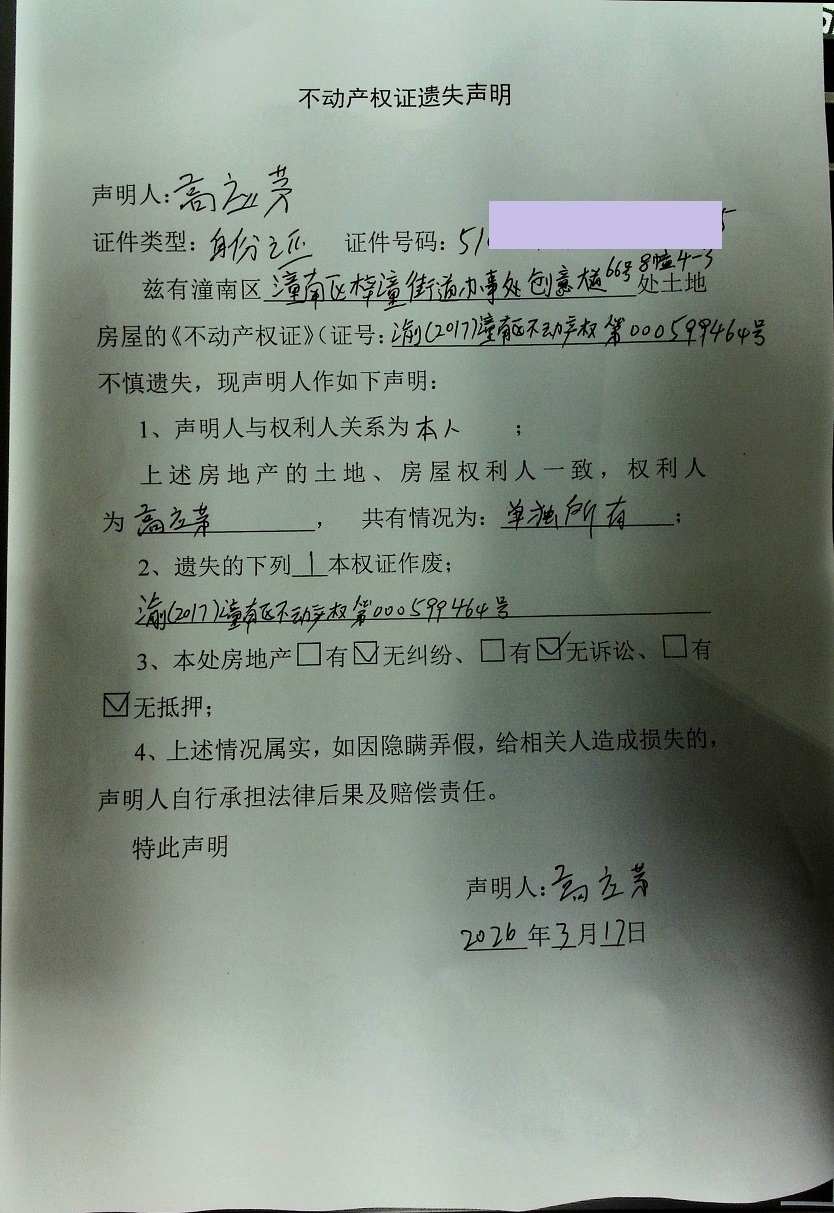 不动产权证遗失声明
声明人：高应茅
证件类型：身份证 证件号码：51 5
兹有潼南区潼南区梓潼街道办事处创意 66号8幢4-3处土地
房屋的《不动产权证》（证号：渝(2017)潼南区不动产权第000599464号
不慎遗失，现声明人作如下声明：
1、声明人与权利人关系为本人；
上述房地产的土地、房屋权利人一致，权利人
为高应茅，共有情况为：单独所有；
2、遗失的下列1本权证作废；
渝(2017)潼南区不动产权第000599464号
3、本处房地产□有☑无纠纷、□有☑无诉讼、□有
☑无抵押；
4、上述情况属实，如因隐瞒弄假，给相关人造成损失的，
声明人自行承担法律后果及赔偿责任。
特此声明
声明人：高应茅
2026年3月17日